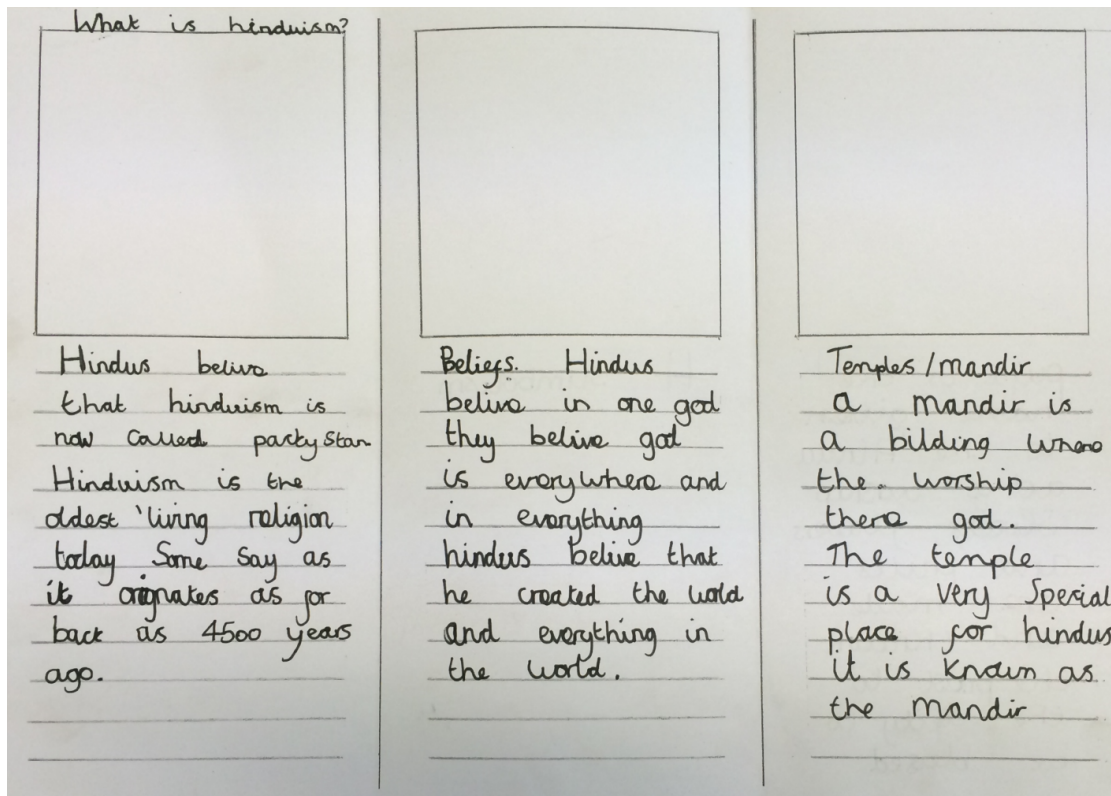 What is hinduism?
Hindus belive
that hinduism is
now called partystan
Hinduism is the
oldest 'living religion
today Some Say as
it orignates as far
back as 4500 years
ago.
Beliefs. Hindus
belive in one god
they belive god
is everywhere and
in everything
hindus belive that
he created the world
and everything in
the world.
Temples/mandir
a mandir is
a bilding where
the. worship
there god.
The temple
is a very Special
place for hindus
it is known as
the mandir